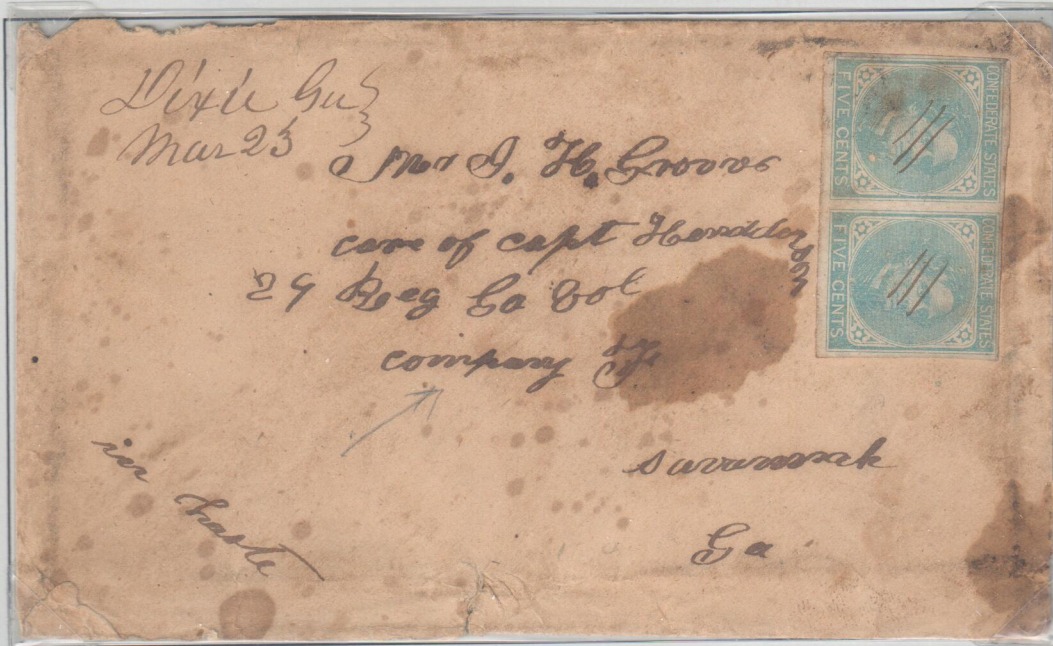 Dixie Ga
Mar 23
Mr J. H. Groovs
care of capt
29 Reeg Ga Vol
company F
savannak
Ga
in haste
CONFEDERATE STATES
FIVE CENTS
CONFEDERATE STATES
FIVE CENTS